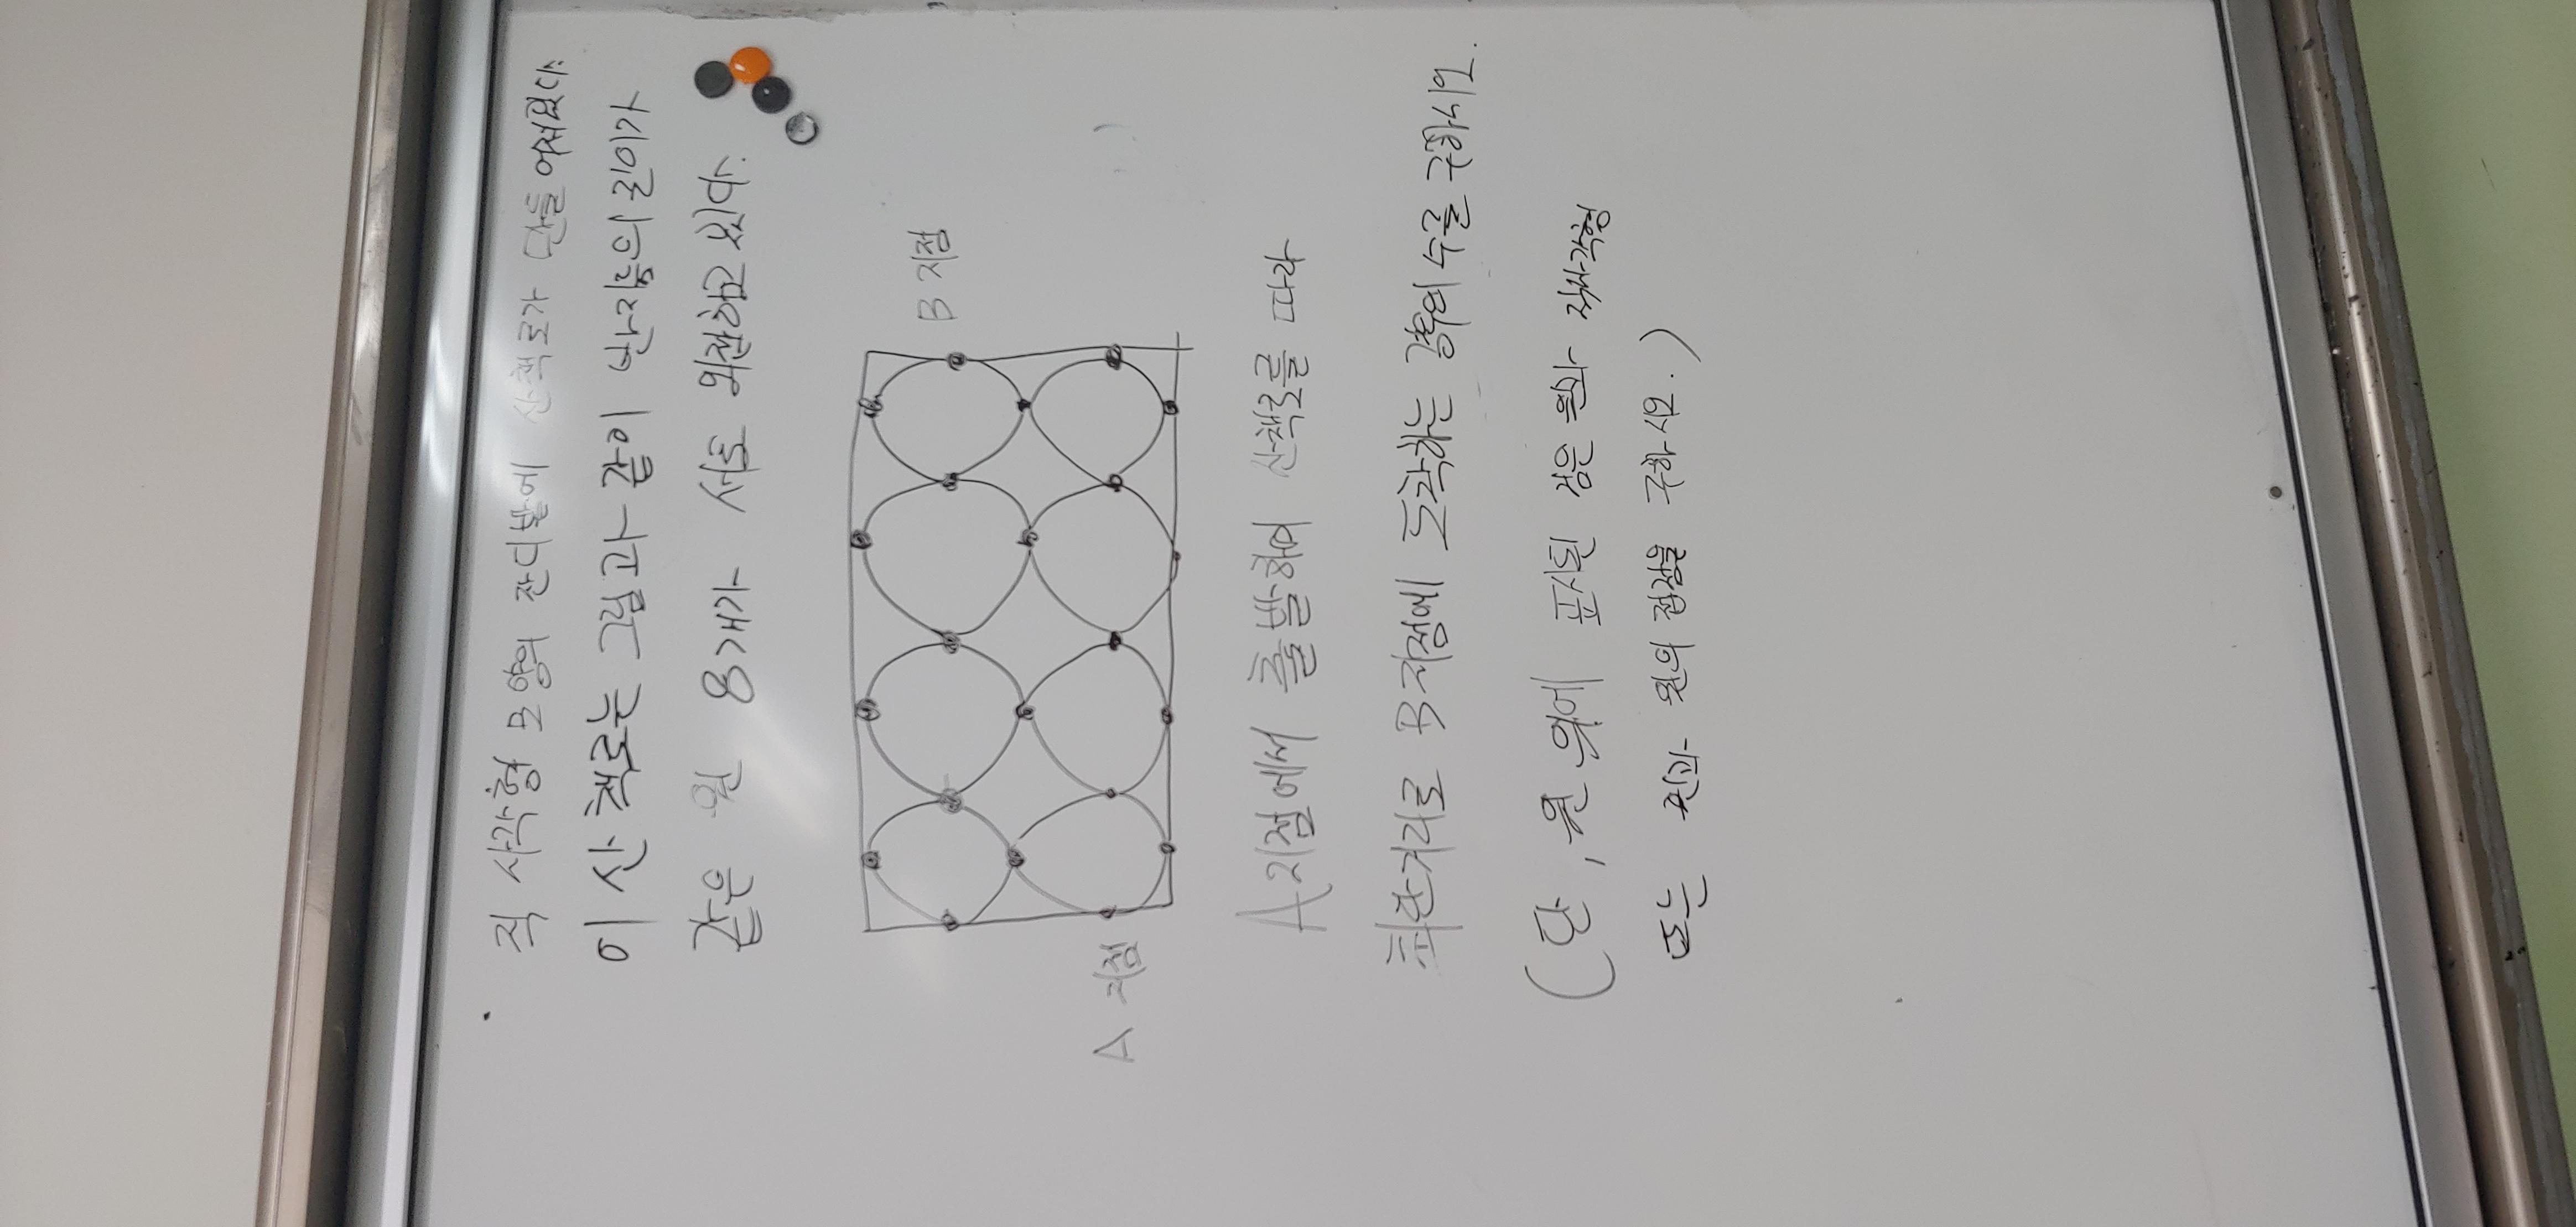 직 사각형 모양의 잔디밭에 산책로가 만들어져있다.
이 산책로는 그림과 같이 반지름의 길이가
같은 원 8개가 서로 외접하고 있다.
B 지점
A 지점
A지점에서 출발하여 산책로를 따라
최단거리로 B지점에 도착하는 경우의 수를 구하시오.
(단, 원 위에 표시된 검은 원과 직사각형
또는 원과 원의 접점을 구하시오.)